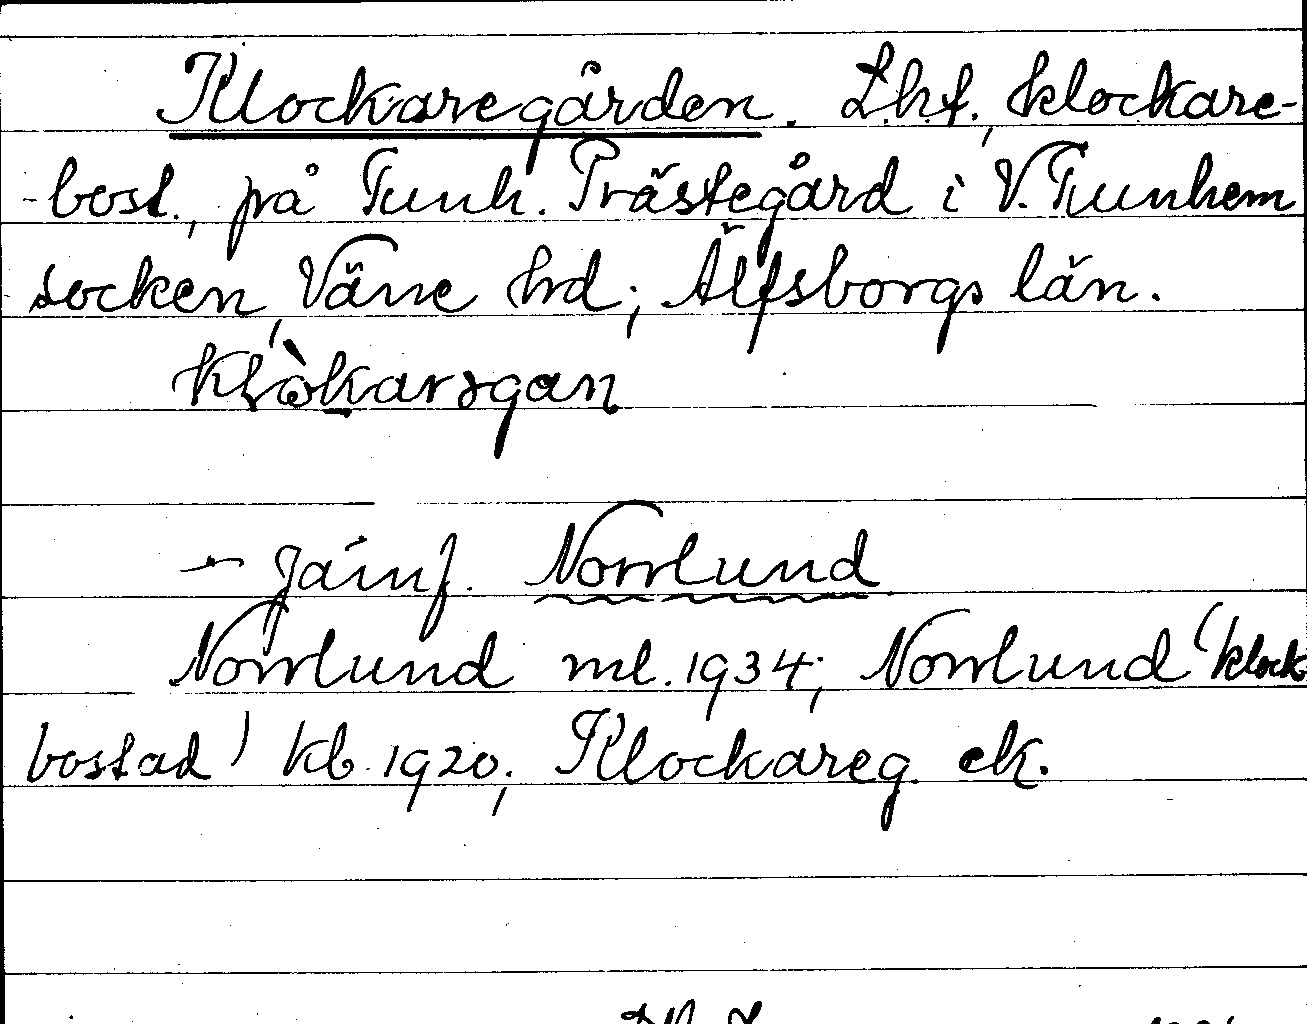 Klockaregården. Lht., klockare-
-bost., på Tunh. Prästegård i V. Tunhem
socken, Väne hd; Älfsborgs län.
klòkarsgan
- Jämf. Norrlund
Norrlund ml. 1934; Norrlund (klock
bostad) kb. 1920; Klockareg. ek.